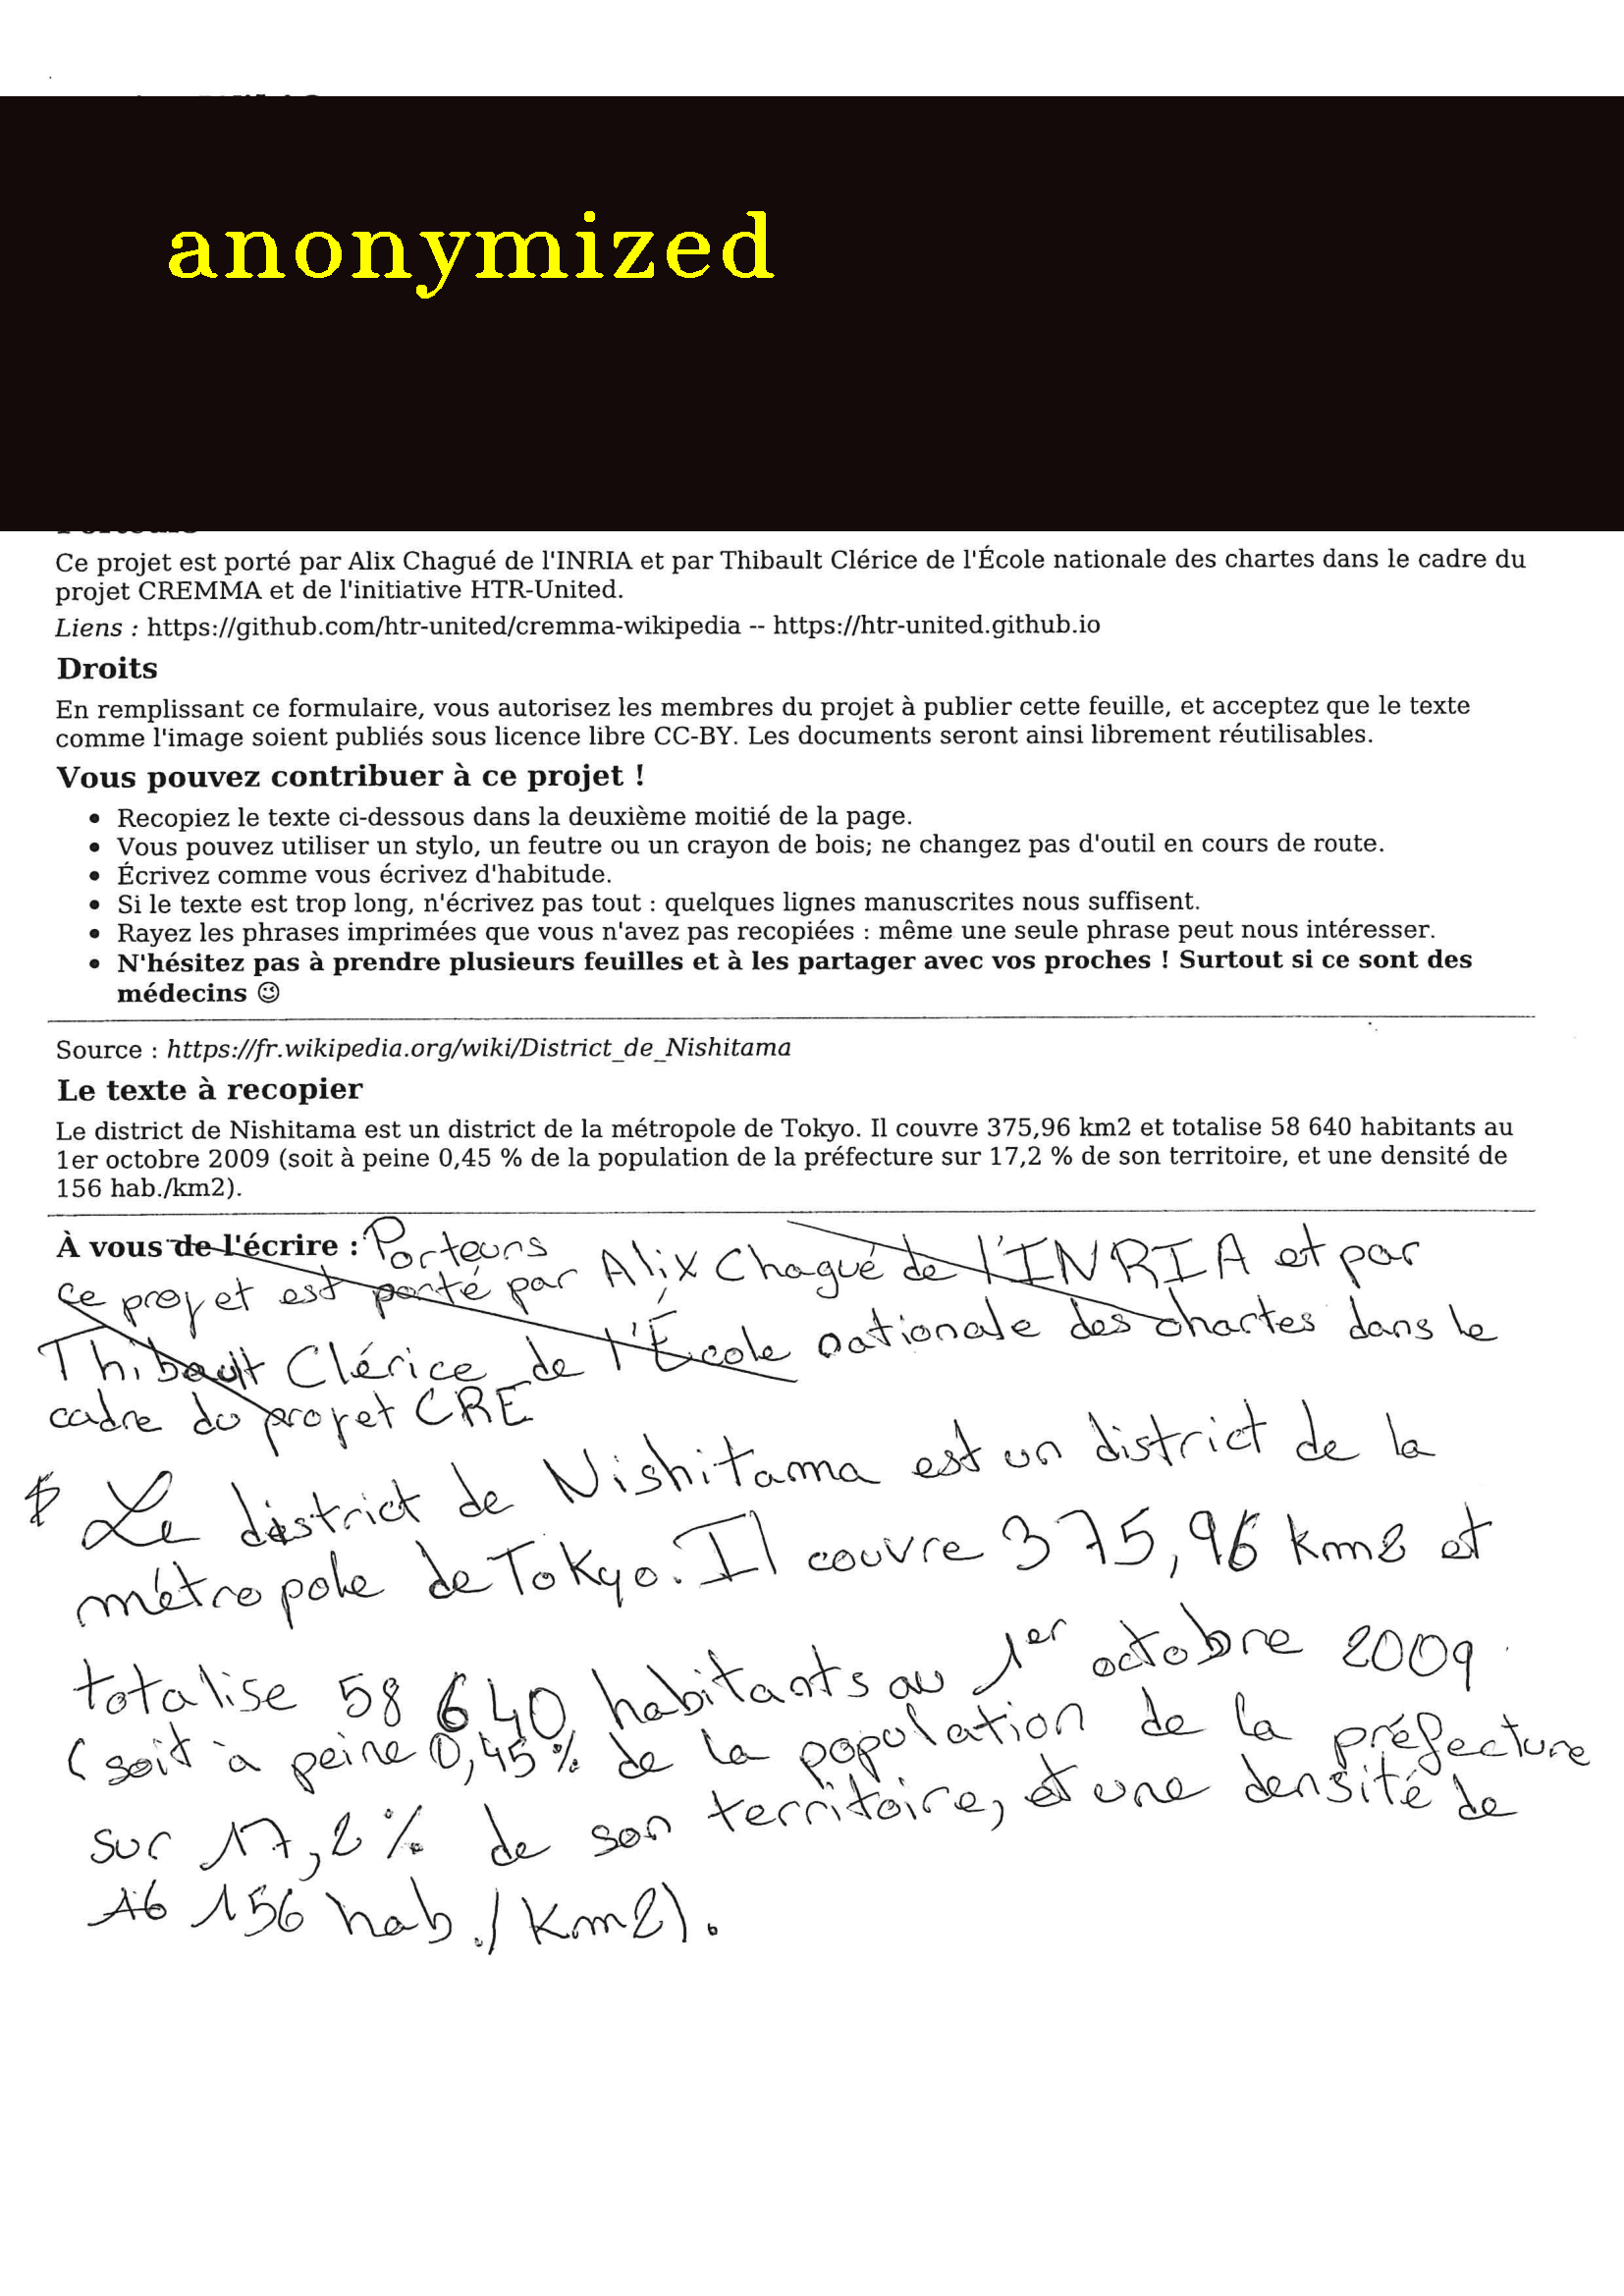 anonymized
Ce projet est porté par Alix Chagué de l'INRIA et par Thibault Clérice de l'École nationale des chartes dans le cadre du
projet CREMMA et de l'initiative HTR-United.
Liens : https://github.com/htr-united/cremma-wikipedia -- https://htr-united.github.io
Droits
En remplissant ce formulaire, vous autorisez les membres du projet à publier cette feuille, et acceptez que le texte
comme l'image soient publiés sous licence libre CC-BY. Les documents seront ainsi librement réutilisables.
Vous pouvez contribuer à ce projet !
• Recopiez le texte ci-dessous dans la deuxième moitié de la page.
• Vous pouvez utiliser un stylo, un feutre ou un crayon de bois; ne changez pas d'outil en cours de route.
• Écrivez comme vous écrivez d'habitude.
• Si le texte est trop long, n'écrivez pas tout : quelques lignes manuscrites nous suffisent.
• Rayez les phrases imprimées que vous n'avez pas recopiées : même une seule phrase peut nous intéresser.
• N'hésitez pas à prendre plusieurs feuilles et à les partager avec vos proches ! Surtout si ce sont des
médecins 😉
Source : https://fr.wikipedia.org/wiki/District_de_Nishitama
Le texte à recopier
Le district de Nishitama est un district de la métropole de Tokyo. Il couvre 375,96 km2 et totalise 58 640 habitants au
1er octobre 2009 (soit à peine 0,45 % de la population de la préfecture sur 17,2 % de son territoire, et une densité de
156 hab./km2).
À vous de l'écrire : Porteurs
ce projet est porté par Alix Chagué de l'INRIA et par
Thibault Clérice de l'École nationale des chartes dans le
cadre du projet CRE
Le district de Nishitama est un district de la
métropole de Tokyo. Il couvre 375,96 km2 et
totalise 58 640 habitants au 1er octobre 2009
(soit à peine 0,45% de la population de la préfecture
sur 17,2% de son territoire, et une densité de
16 156 hab./km2).